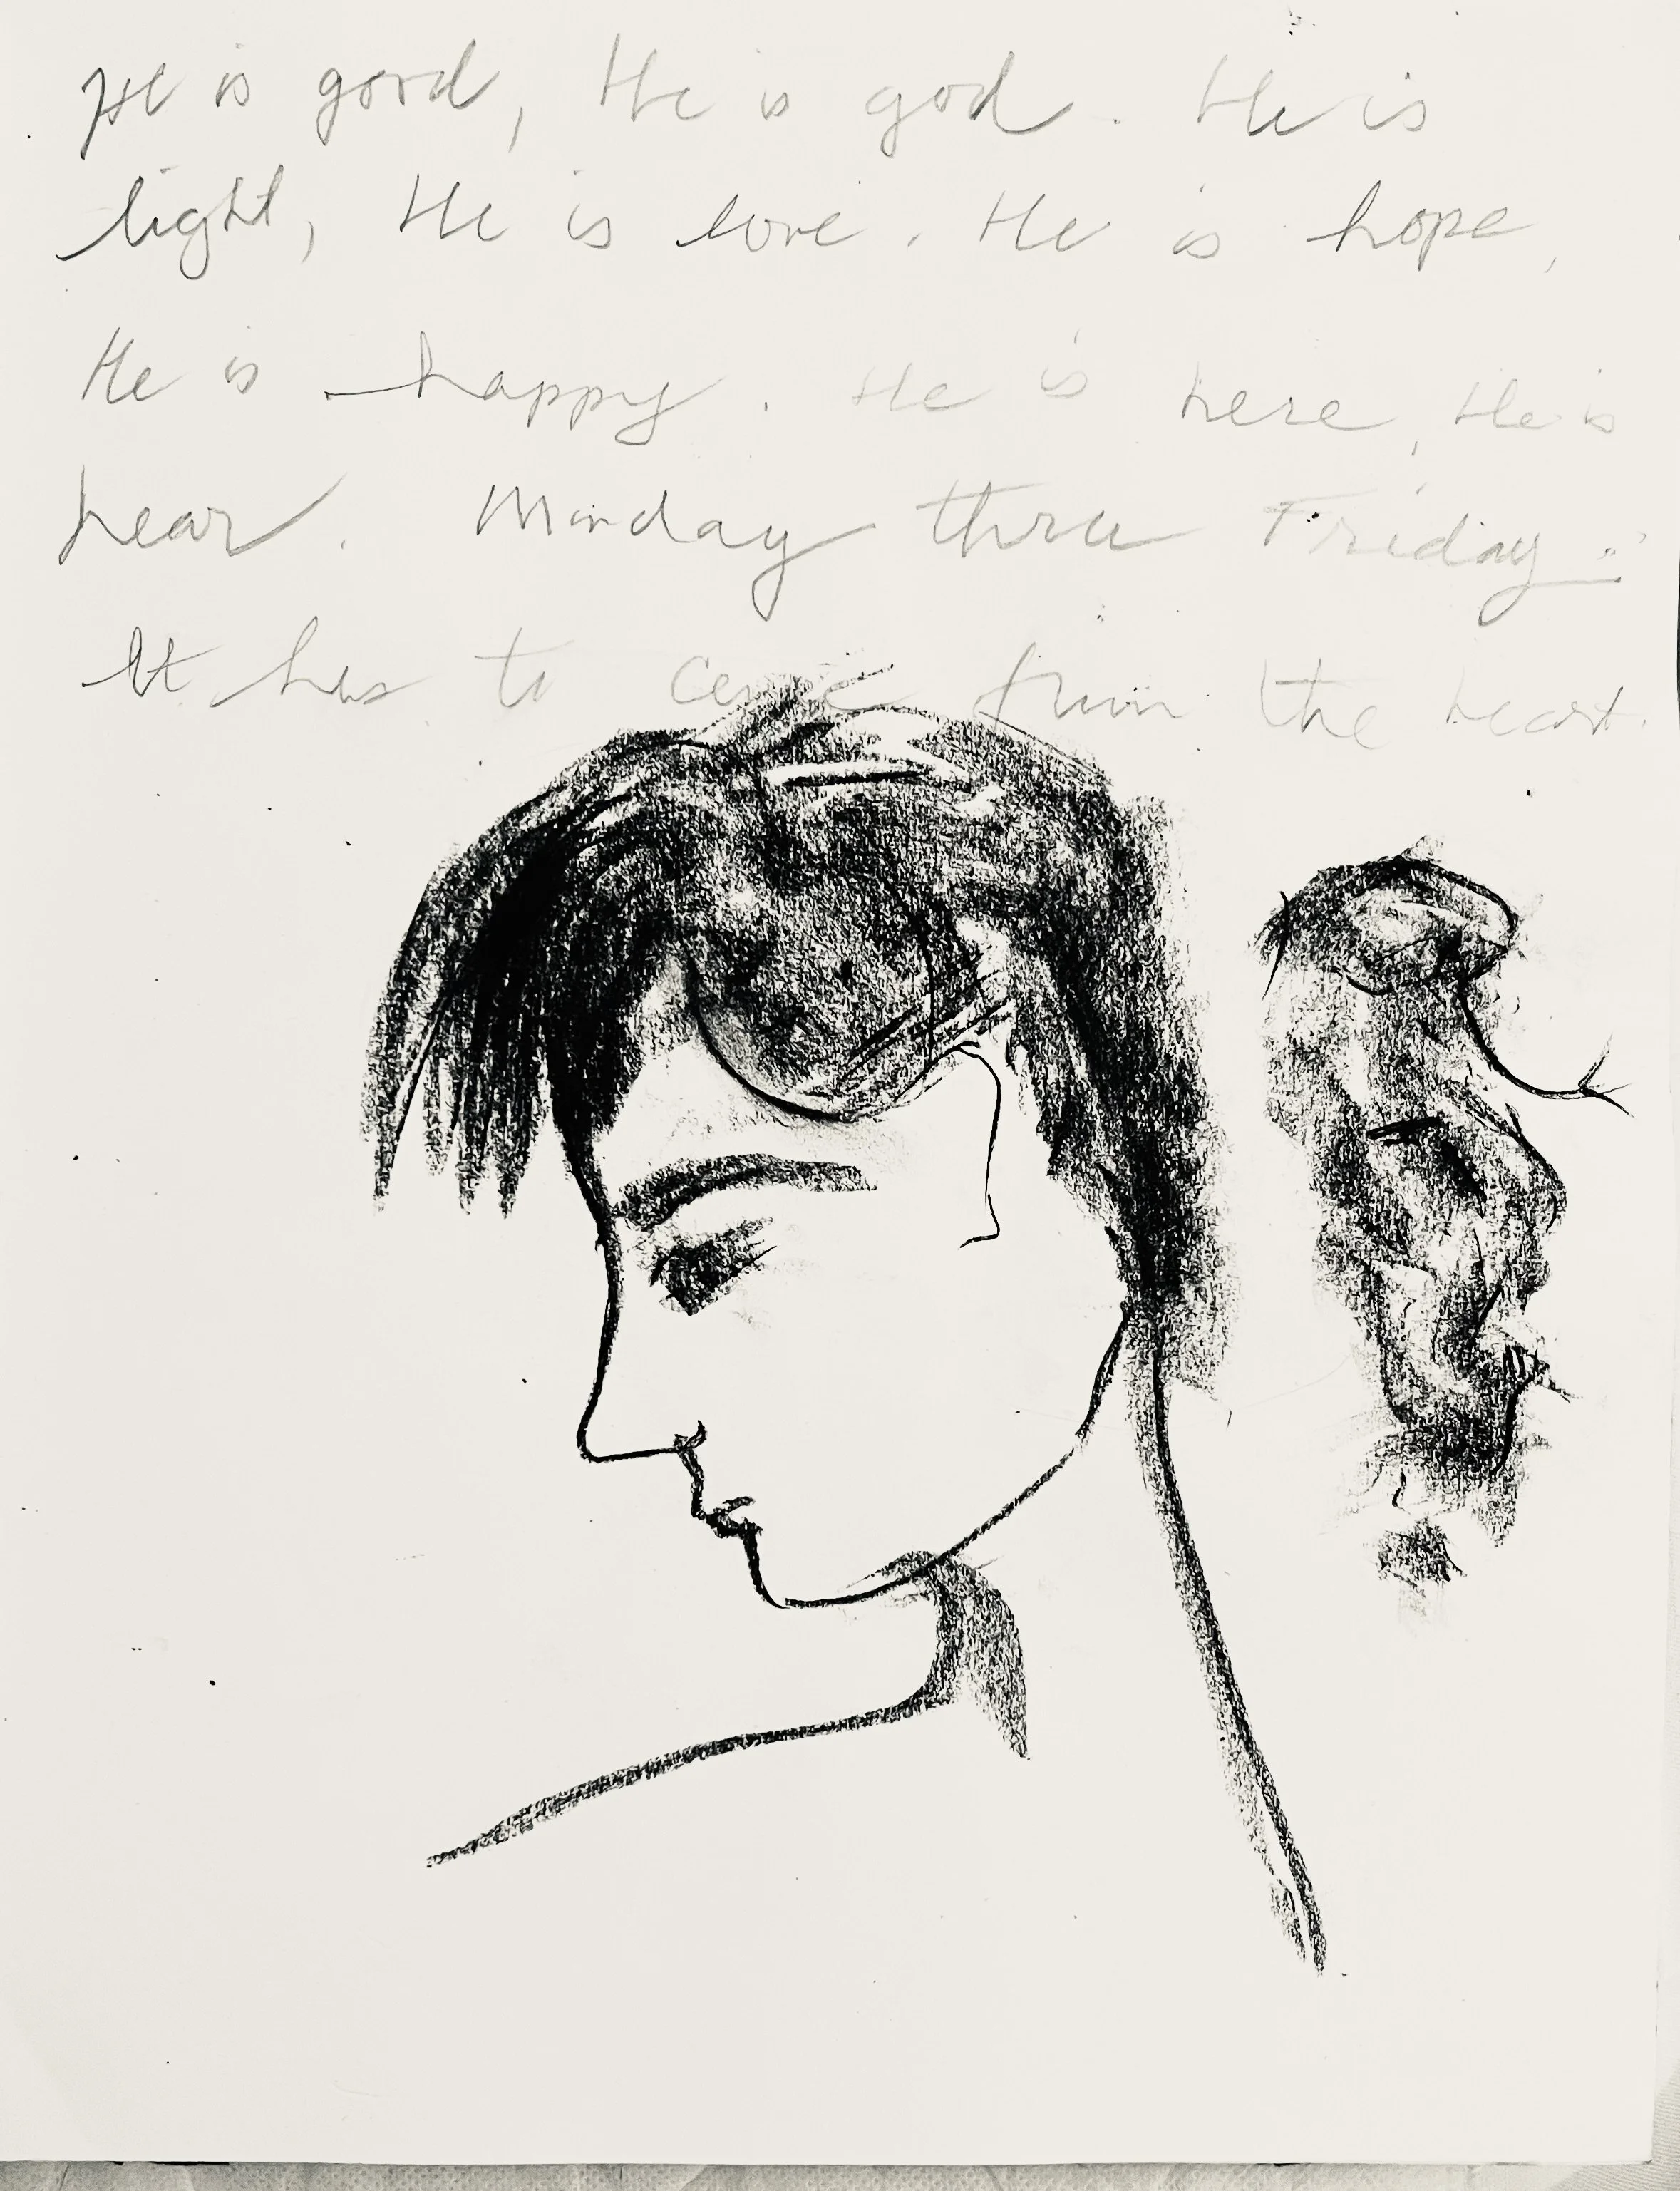 He is good, He is god. He is
light, He is love. He is hope,
He is happy. He is here, He is
hear. Monday thru Friday.
It has to come from the heart.